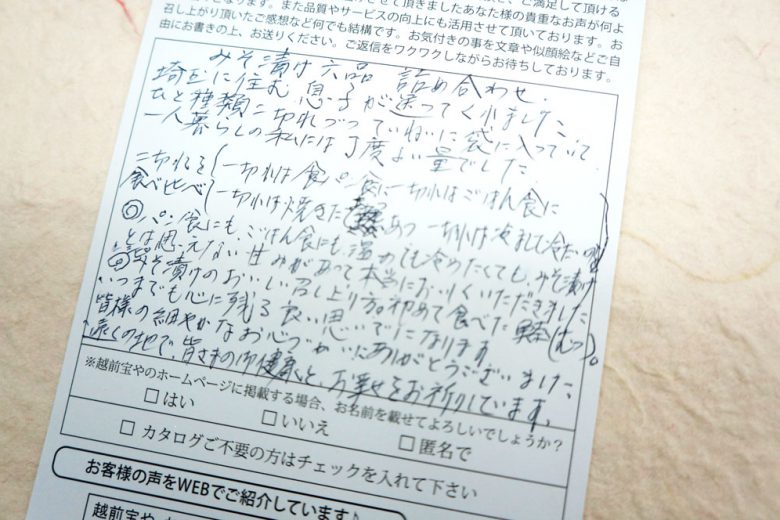 して頂きましたあなた様の貴重なお声が何よ
りとなります。また品質やサービスの向上にも活用させて頂いております。お
召し上がり頂いたご感想など何でも結構です。お気付きの事を文章や似顔絵などご自
由にお書きの上、お送りください。ご返信をワクワクしながらお待ちしております。
みそ漬け六品 詰め合わせ.
埼玉に住む息子が送ってくれました
ひと種類二切れづつていねいに袋に入っていて
一人暮らしの私には丁度よい量でした
二切れを 一切れは食パン食に一切れはごはん食に
食べ比べ 一切れは焼きたてあつあつ 一切れは冷まして冷たいの
◎パン食にも、ごはん食にも温めても冷めたくても、みそ漬け
とは思えない甘みがあって本当においしくいただきました
◎みそ漬けのおいしい召し上り方。初めて食べた
いつまでも心に残る良い思いでになります
皆様の細やかなお心づかいにありがとうございました
遠くの地で、皆さまの御健康と、お幸せをお祈りしています。
※越前宝やのホームページに掲載する場合、お名前を載せてよろしいでしょうか?
□はい □いいえ □匿名で
□ カタログご不要の方はチェックを入れて下さい
お客様の声をWEBでご紹介しています♪
越前宝や